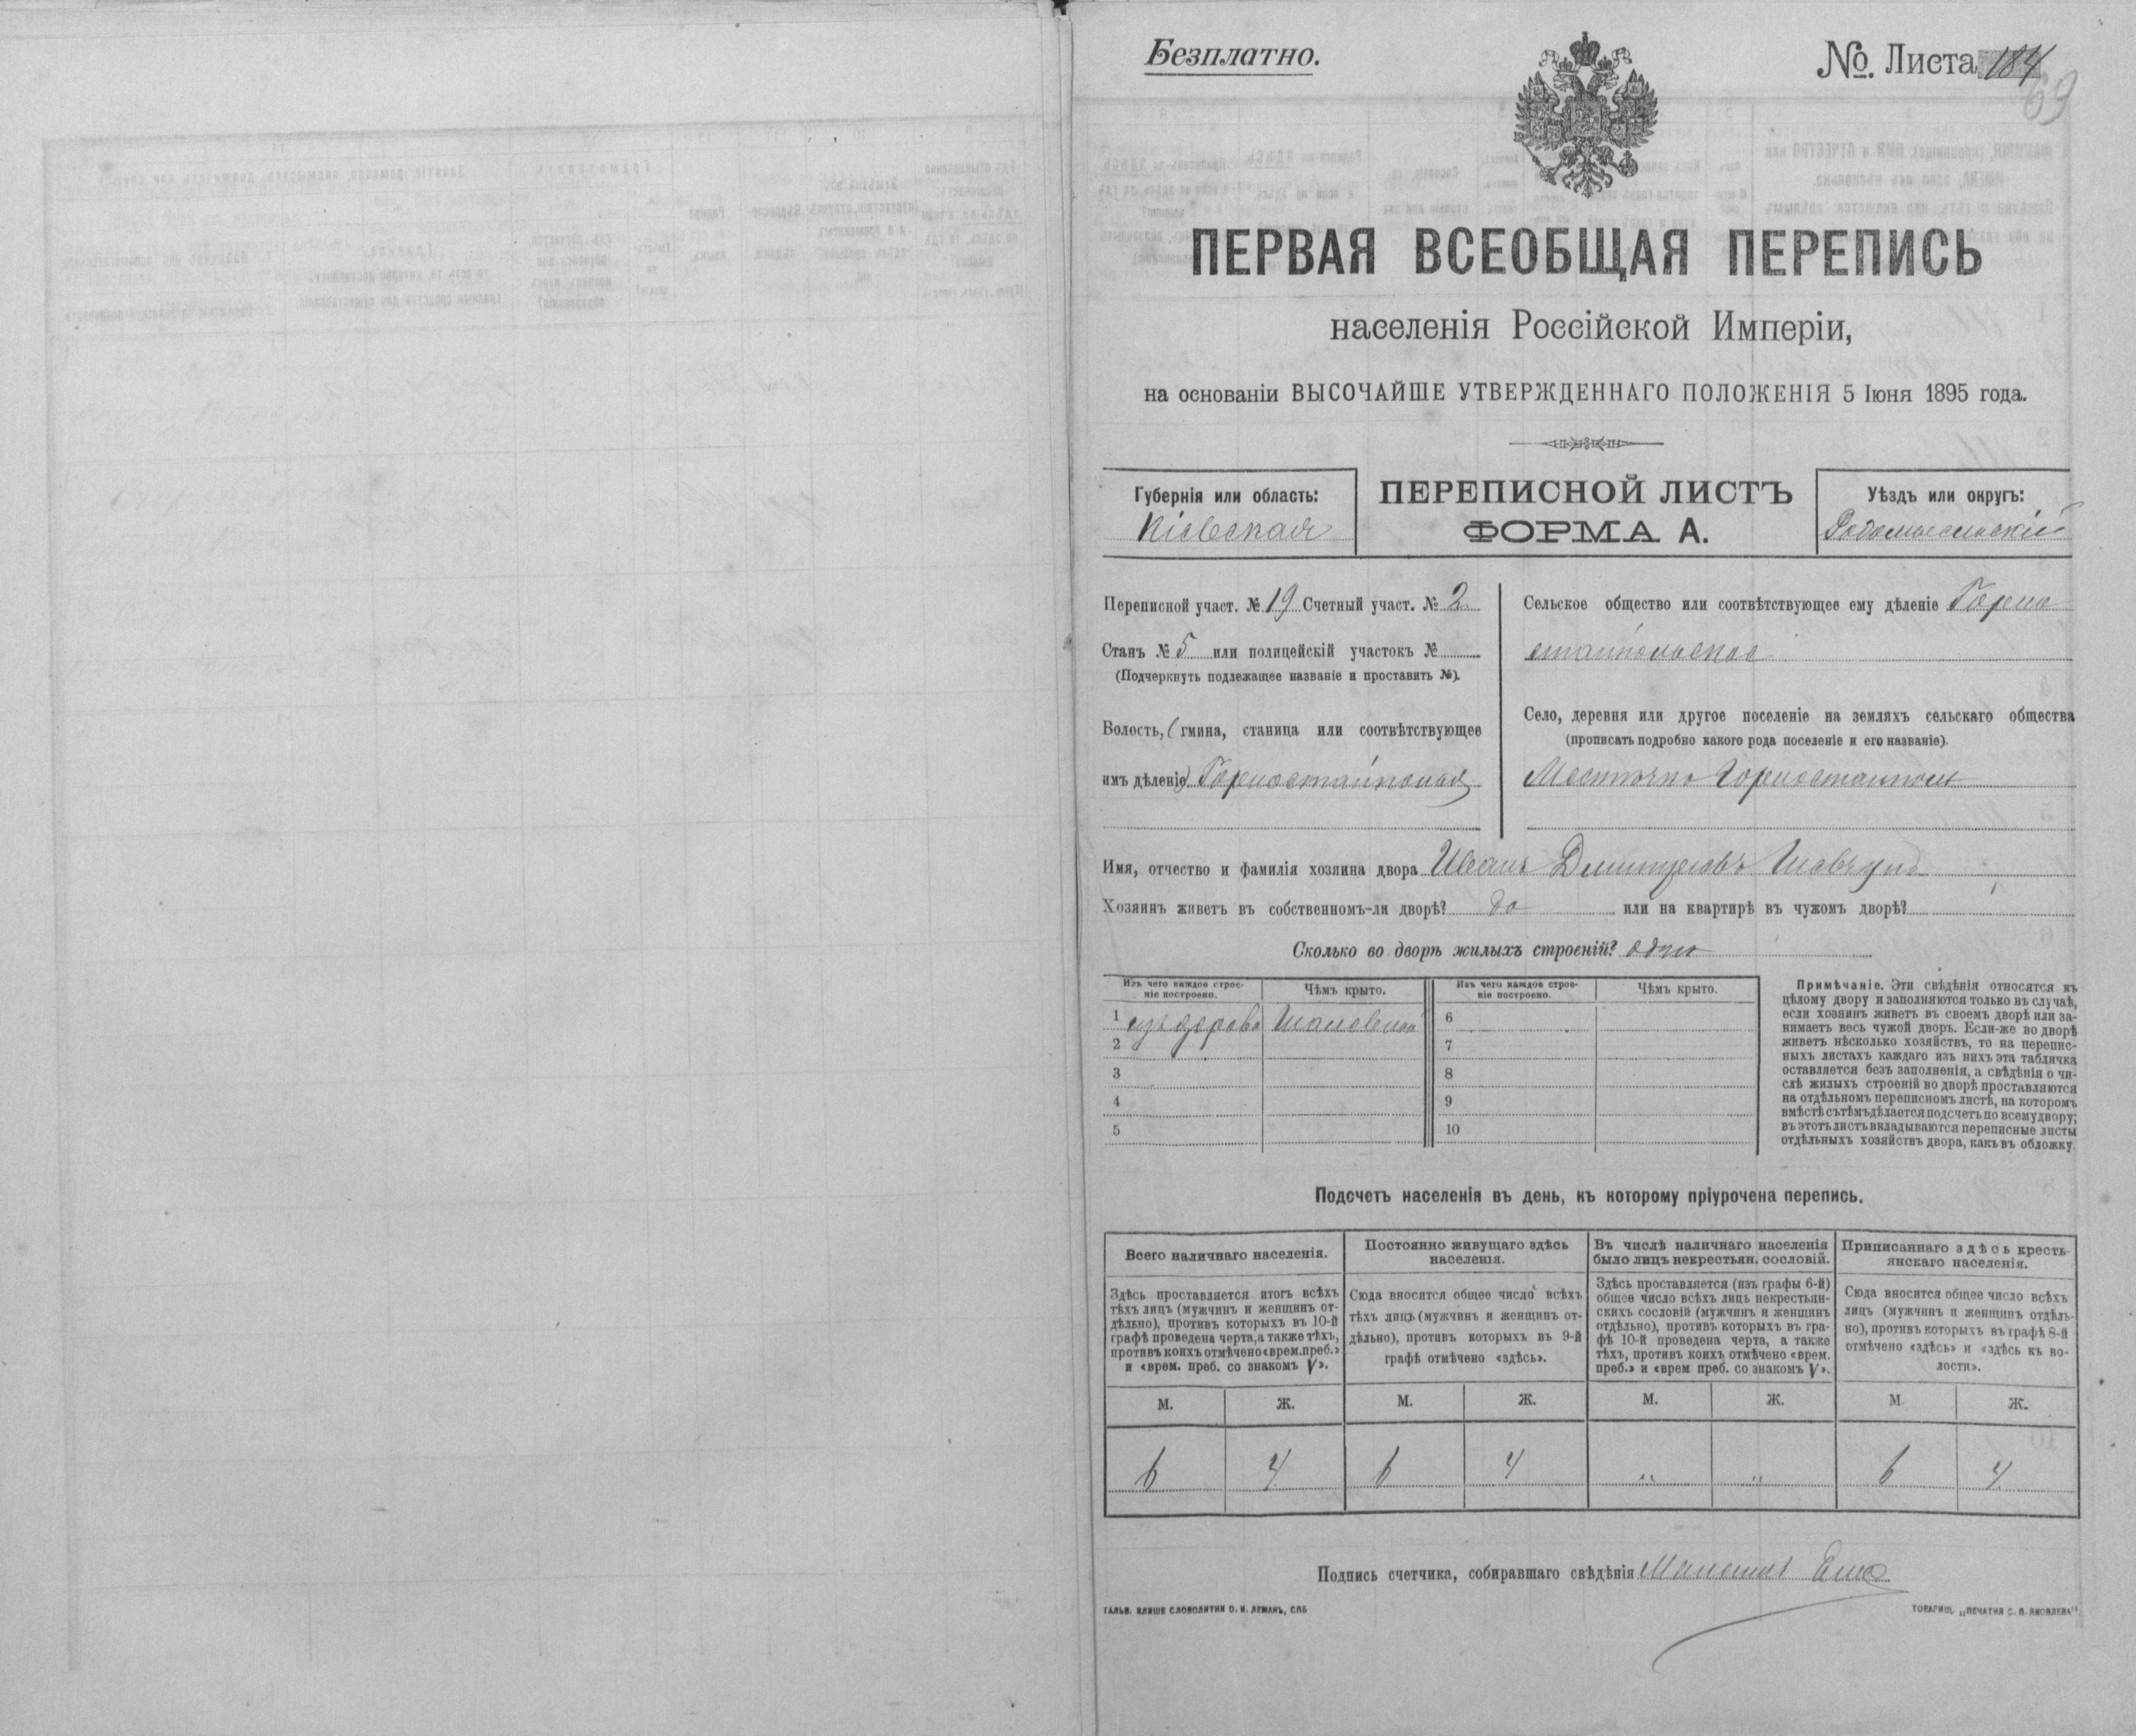 Безплатно.
№ Листа 184
69
ПЕРВАЯ ВСЕОБЩАЯ ПЕРЕПИСЬ
населенія Россійской Имперіи,
на основаніи ВЫСОЧАЙШЕ УТВЕРЖДЕННАГО ПОЛОЖЕНІЯ 5 Іюня 1895 года.
Губернія или область:
Кіевская
ПЕРЕПИСНОЙ ЛИСТЪ
ФОРМА А.
Уѣздъ или округъ:
Радомысльскій
Переписной участ. № 19 Счетный участ. № 2
Станъ № 5 или полицейскій участокъ №
(Подчеркнуть подлежащее названіе и проставить №).
Волость, (гмина, станица или соотвѣтствующее
имъ дѣленіе) Горностайпольская
Сельское общество или соотвѣтствующее ему дѣленіе Горно
стайпольское
Село, деревня или другое поселеніе на земляхъ сельскаго общества
(прописать подробно какого рода поселеніе и его названіе).
Местечко Горностайполь
Имя, отчество и фамилія хозяина двора Иванъ Дмитріевъ
Хозяинъ живетъ въ собственномъ-ли дворѣ? да или на квартирѣ въ чужомъ дворѣ?
Сколько во дворѣ жилыхъ строеній? одно
Изъ чего каждое строе-
ніе построено.
Чѣмъ крыто.
Изъ чего каждое строе-
ніе построено.
Чѣмъ крыто.
1 изъ дерева
6
2
7
3
8
4
9
5
10
Примѣчаніе. Эти свѣдѣнія относятся къ
цѣлому двору и заполняются только въ случаѣ,
если хозяинъ живетъ въ своемъ дворѣ или за-
нимаетъ весь чужой дворъ. Если-же во дворѣ
живетъ нѣсколько хозяйствъ, то на перепис-
ныхъ листахъ каждаго изъ нихъ эта табличка
оставляется безъ заполненія, а свѣдѣнія о чи-
слѣ жилыхъ строеній во дворѣ проставляются
на отдѣльномъ переписномъ листѣ, на которомъ
вмѣстѣ съ тѣмъ дѣлается подсчетъ по всему двору;
въ этотъ листъ вкладываются переписные листы
отдѣльныхъ хозяйствъ двора, какъ въ обложку
Подсчетъ населенія въ день, къ которому пріурочена перепись.
Всего наличнаго населенія.
Постоянно живущаго здѣсь
населенія.
Въ числѣ наличнаго населенія
было лицъ некрестьян. сословій.
Приписаннаго здѣсь кресть-
янскаго населенія.
Здѣсь проставляется итогъ всѣхъ
тѣхъ лицъ (мужчинъ и женщинъ от-
дѣльно), противъ которыхъ въ 10-й
графѣ проведена черта, а также тѣхъ,
противъ коихъ отмѣчено «врем. преб.»
и «врем. преб. со знакомъ V».
Сюда вносится общее число всѣхъ
тѣхъ лицъ (мужчинъ и женщинъ от-
дѣльно), противъ которыхъ въ 9-й
графѣ отмѣчено «здѣсь».
Здѣсь проставляется (изъ графы 6-й)
общее число всѣхъ лицъ некрестьян-
скихъ сословій (мужчинъ и женщинъ
отдѣльно), противъ которыхъ въ гра-
фѣ 10-й проведена черта, а также
тѣхъ, противъ коихъ отмѣчено «врем.
преб.» и «врем. преб. со знакомъ V».
Сюда вносится общее число всѣхъ
лицъ (мужчинъ и женщинъ отдѣль-
но), противъ которыхъ въ графѣ 8-й
отмѣчено «здѣсь» и «здѣсь къ во-
лости».
М. Ж. М. Ж. М. Ж. М. Ж.
6 4 6 4 " " 6 4
Подпись счетчика, собиравшаго свѣдѣнія
ГАЛЬВ. КЛИШЕ СЛОВОЛИТНИ О. И. ЛЕМАНЪ, СПБ
ТОВАРИЩ. „ПЕЧАТНЯ С. П. ЯКОВЛЕВА"